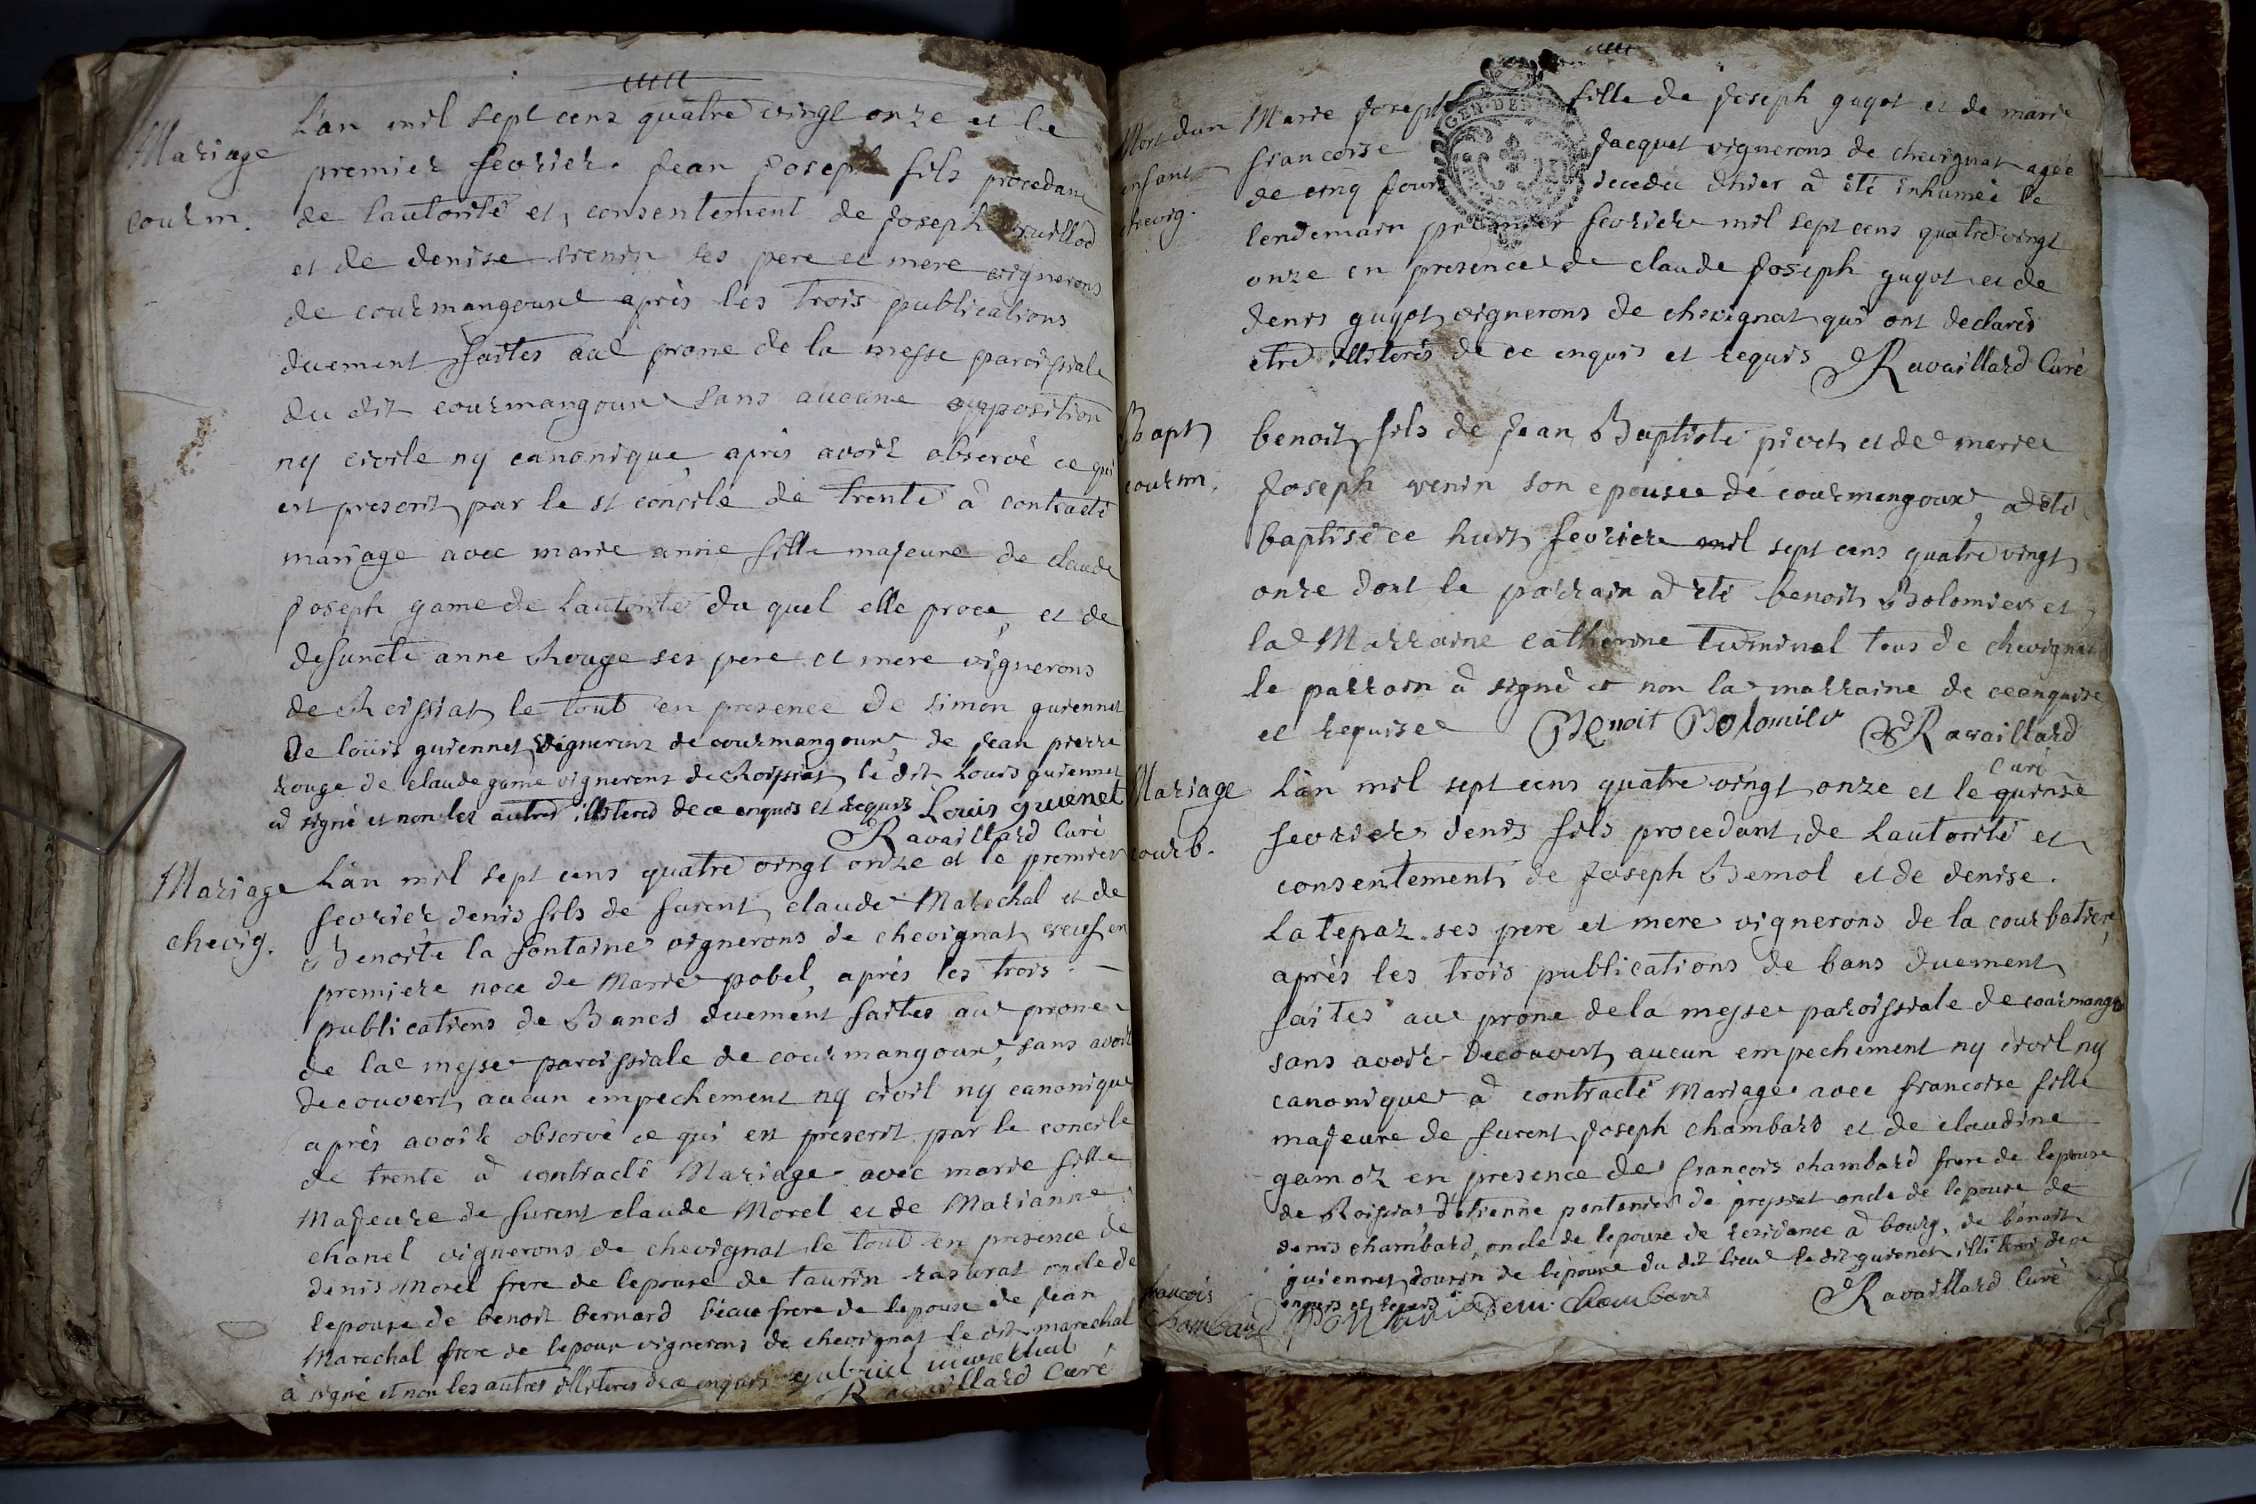 Mariage
courm.
L'an mil sept cens quatre vingt onze et le
premier fevrier. jean joseph fils procedant
de l'autorité et consentement de joseph
et de denise venin ses pere et mere vignerons
de courmangoux après les trois publications
duement faites au prone de la messe paroissiale
du dit courmangoux sans aucune opposition
ny civile ny canonique, après avoir observé ce qui
est prescrit par le st concile de trente à contracté
mariage avec marie anne fille majeure de claude
joseph game de l'autorité du quel elle proce, et de
defuncte anne Rouge ses pere et mere vignerons
de Roissiat le tout en presence de simon guiennet
de loüis guiennet, vignerons de courmangoux, de jean pierre
rouge de claude game vignerons de Roissiat, le dit Louis guiennet
à signé et non les autres illiteres de ce enquis et requis Louis guenet
Ravaillard Curé
Mariage
chevig.
L'an mil sept cens quatre vingt onze et le premier
fevrier denis fils de furent claude Marechal et de
Benoite la fontaine vignerons de chevignat veuf en
premiere noce de Marie pobel, après les trois
publications de Bancs duement faites au prone
de la messe paroissiale de courmangoux, sans avoir
decouvert aucun empechement ny civil ny canonique
après avoir observé ce qui est prescrit par le concile
de trente à contracté Mariage avec marie fille
Majeure de furent claude Morel et de Marianne
chanel vignerons de chevignat le tout en presence de
denis Morel frere de lepouse de taurin rasurat oncle de
lepouse de benoit bernard beau frere de lepouse de jean
Marechal frere de lepoux vignerons de chevignat le dit marechal
à signé et non les autres illiteres de ce enquis gabriel marechal
Ravaillard Curé
Mort dun
enfant
chevig.
Marie joseph fille de joseph guyot et de marie
francoise jacquet vignerons de chevignat agée
de cinq jours decedée d'hier à été inhumée le
lendemain premier fevrier mil sept cens quatre vingt
onze en presence de claude joseph guyot et de
denis guyot vignerons de chevignat qui ont declarés
etre illiterés de ce enquis et requis Ravaillard Curé
Bapt
courm.
benoit fils de jean Baptiste pivet et de marie
joseph venin son epousee de courmangoux, à été
baptisé ce huit fevrier mil sept cens quatre vingt
onze dont le parrain à été benoit Bolomier et
la Marraine catherine tous de chevignat
le parrain à signé et non la marraine de ce enquise
et requise Benoit Bolomier Ravaillard
Curé
Mariage
courb.
L'an mil sept cens quatre vingt onze et le quinse
fevrier denis fils procedant de L'autorité et
consentement de joseph Bemol et de denise.
Latepaz ses pere et mere vignerons de la courbatiere,
après les trois publications de bans duement
faites au prone de la messe paroissiale de courmango
sans avoir decouvert aucun empechement ny civil ny
canonique à contracté Mariage avec francoise fille
majeure de furent joseph chambard et de claudine
gamoz en presence de francois chambard frere de lepouse
de Roissiat d'etienne pontanier de pressiat oncle de lepouse de
denis chambard, oncle de lepouse de residance à bourg, de benoit
guiennet cousin de lepouse du dit lieu le dit guienet illiteré de ce
enquis et requis Deni Chambard Ravaillard Curé
francois
Chambard